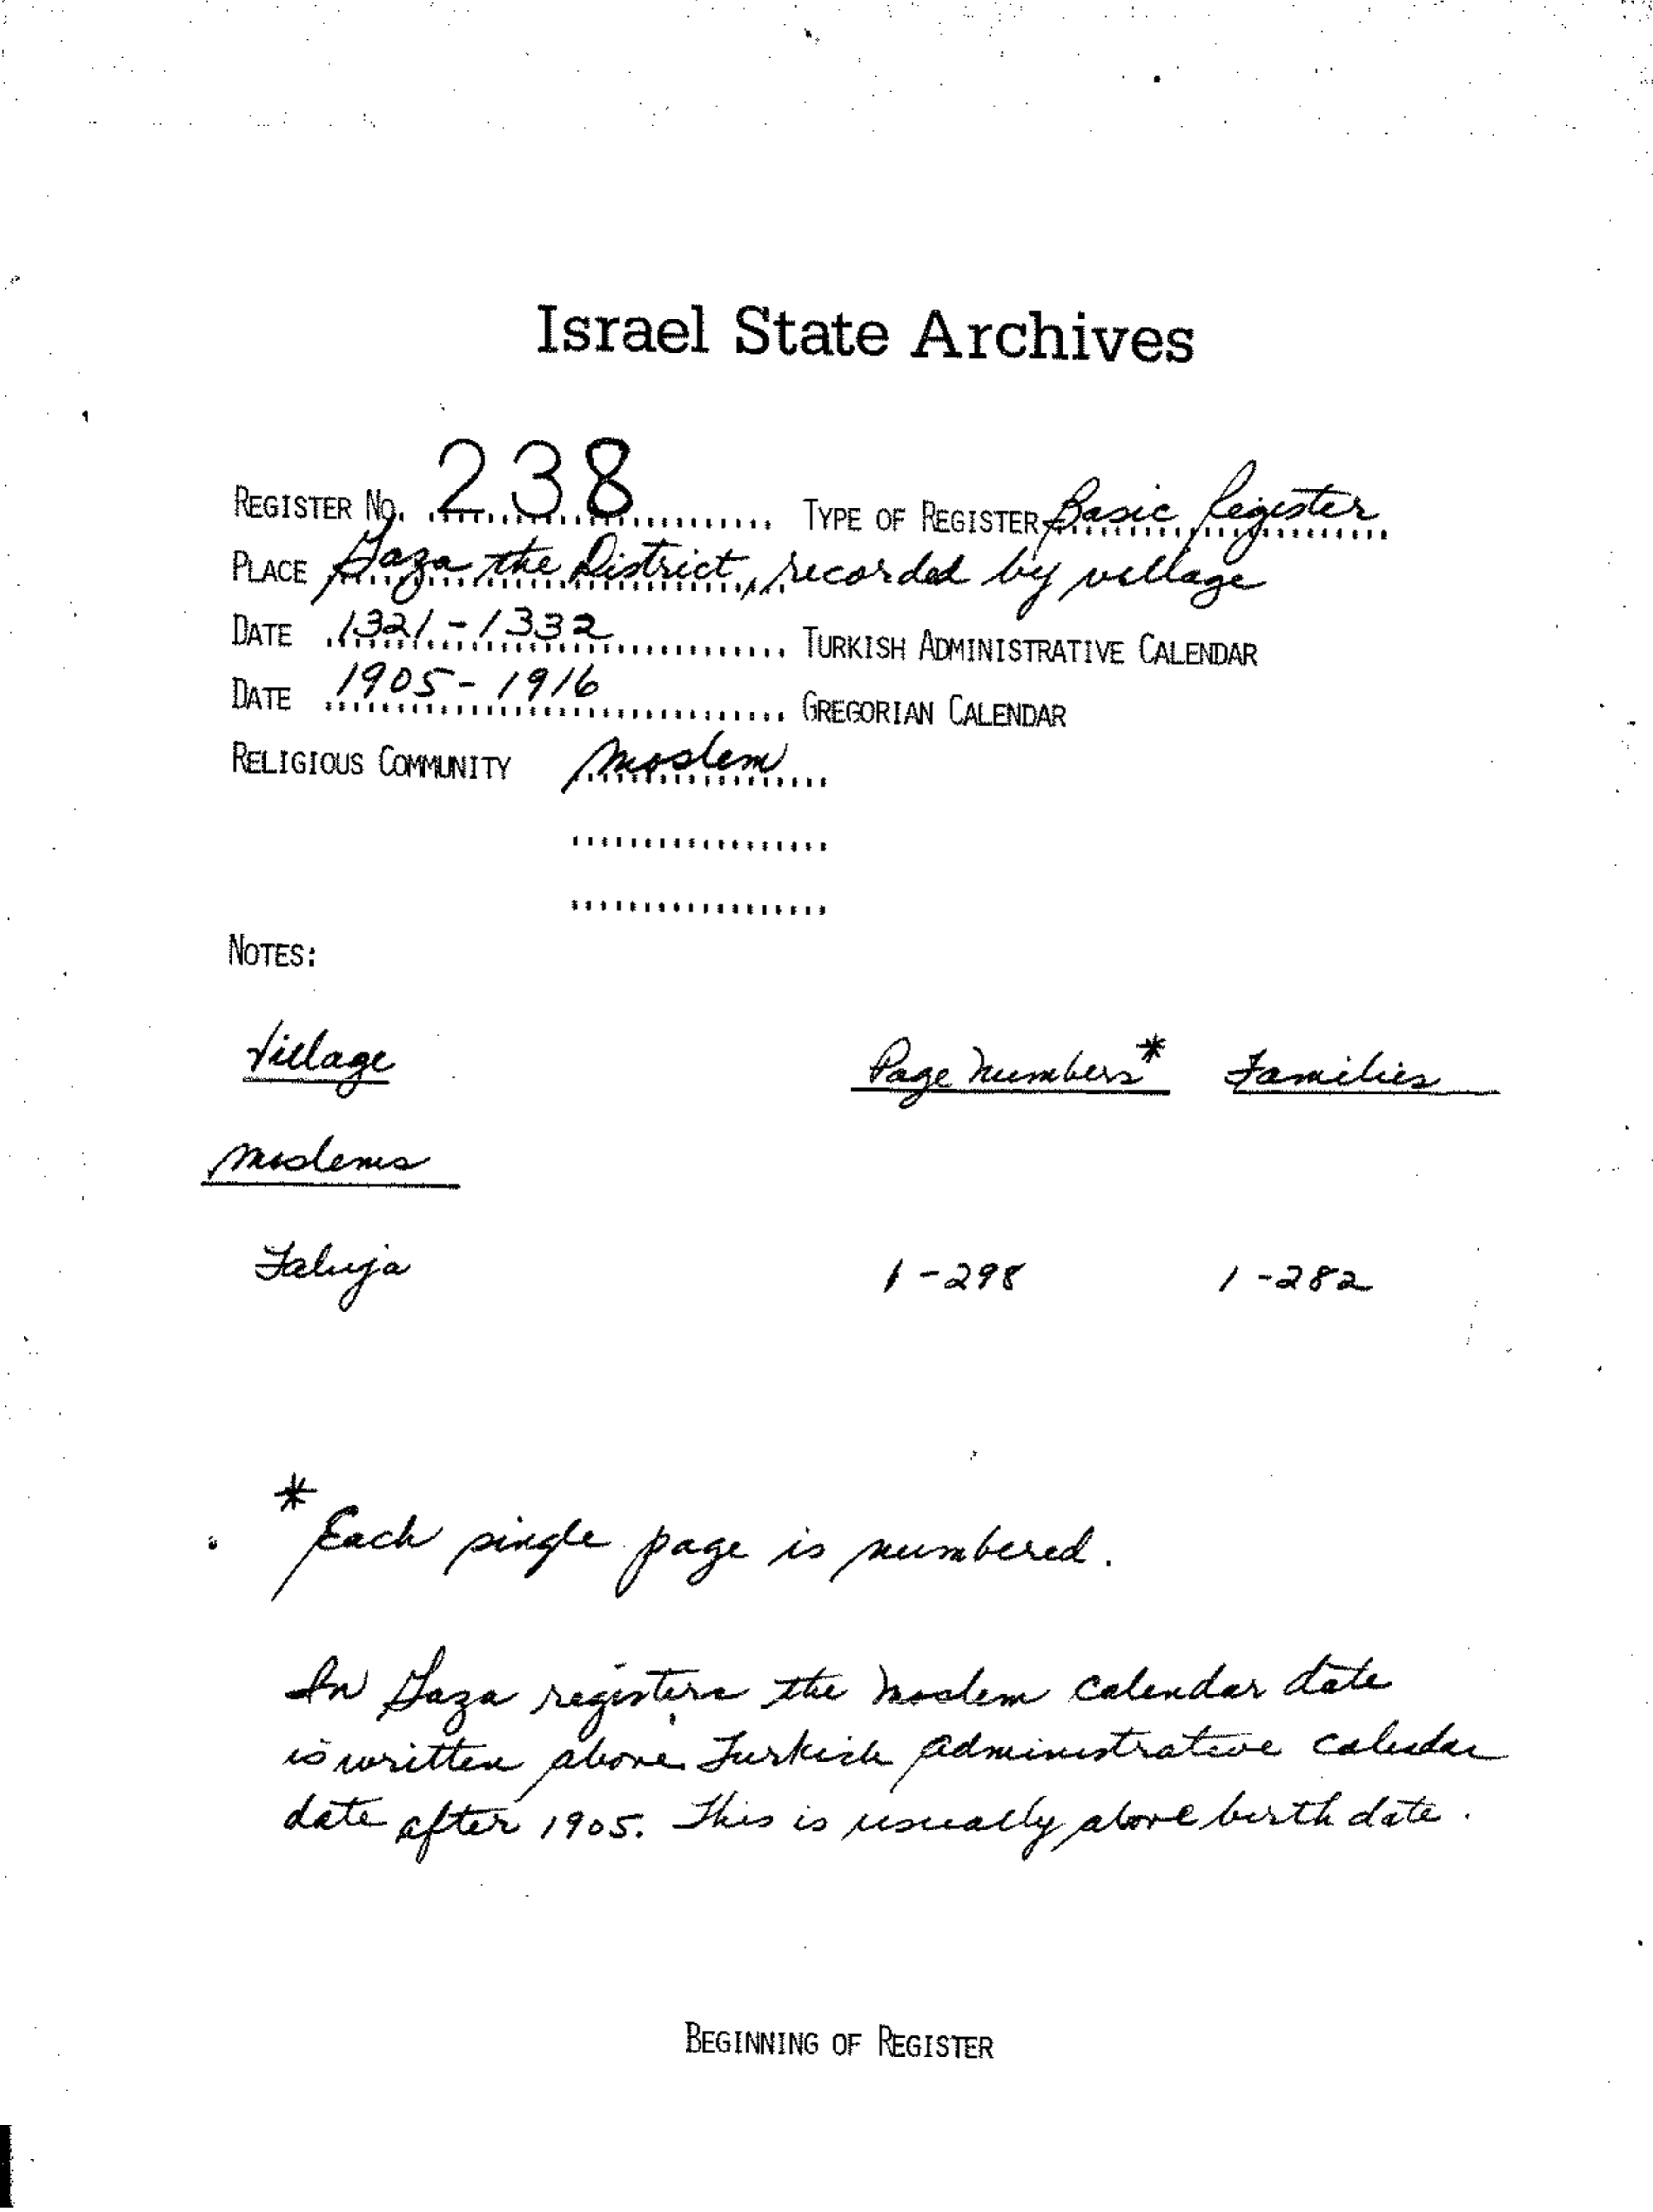 Israel State Archives
REGISTER NO. 238 TYPE OF REGISTER Basic Register
PLACE Gaza the District, recorded by village
DATE 1321-1332 TURKISH ADMINISTRATIVE CALENDAR
DATE 1905-1916 GREGORIAN CALENDAR
RELIGIOUS COMMUNITY Moslem
NOTES:
Village Page Numbers* Families
Moslems
Faluja 1-298 1-282
* Each single page is numbered.
In Gaza registers the Moslem calendar date
is written above Turkish Administrative calendar
date after 1905. This is usually above birth date.
BEGINNING OF REGISTER